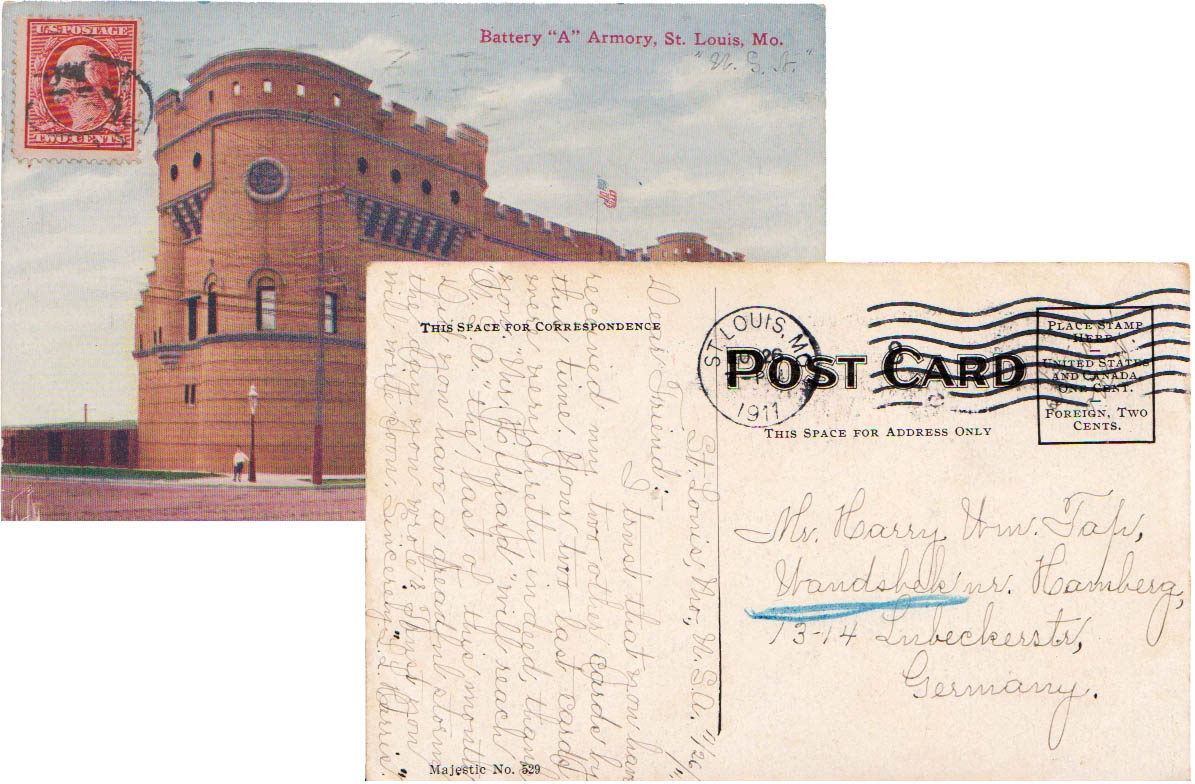 U.S. POSTAGE
TWO CENTS
Battery "A" Armory, St. Louis, Mo.
"U. S. A."
THIS SPACE FOR CORRESPONDENCE
St. Louis, Mo., U.S.A.
Dear Friend:
I trust that you have
received my two other cards by
this time. Your two last cards
were pretty indeed, thank
you. will reach
the last of this month.
Did you have a dreadful storm
the day you wrote? Hope you
will soon, Sincerely, Harris.
Majestic No. 529
ST. LOUIS, MO.
26
1911
POST CARD
THIS SPACE FOR ADDRESS ONLY
PLACE STAMP
HERE
UNITED STATES
AND CANADA
ONE CENT.
FOREIGN, TWO
CENTS.
Mr. Harry Wm. Tap,
Wandsbek nr. Hamberg,
13-14 Lubeckerstr,
Germany.